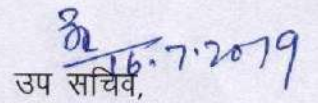 16.7.2019
उप सचिव,